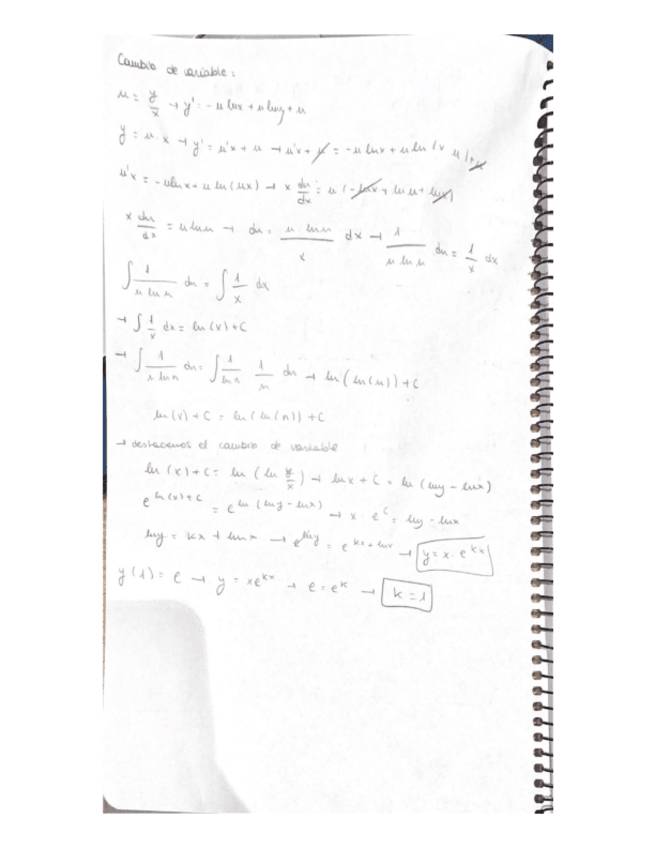 Cambio de variable:
u = y/x → y' = -u lnx + u lny + u
y = u · x → y' = u'x + u → u'x + u = -u lnx + u ln(x u) + u
u'x = -ulnx + u ln(ux) → x du/dx = u (-lnx + lnu + lnx)
x du/dx = u lnu → du = u·lnu/x dx → 1/(u lnu) du = 1/x dx
∫ 1/(u lnu) du = ∫ 1/x dx
→ ∫ 1/x dx = ln(x) + C
→ ∫ 1/(u lnu) du = ∫ 1/lnu 1/u du → ln(ln(u)) + C
ln(x) + C = ln(ln(u)) + C
→ deshacemos el cambio de variable
ln(x) + C = ln(ln y/x) → lnx + C = ln(lny - lnx)
e^(ln(x)+C) = e^(ln(lny - lnx)) → x · e^C = lny - lnx
lny = kx + lnx → e^(lny) = e^(kx+lnx) → y = x · e^(kx)
y(1) = e → y = xe^(kx) → e = e^k → k = 1